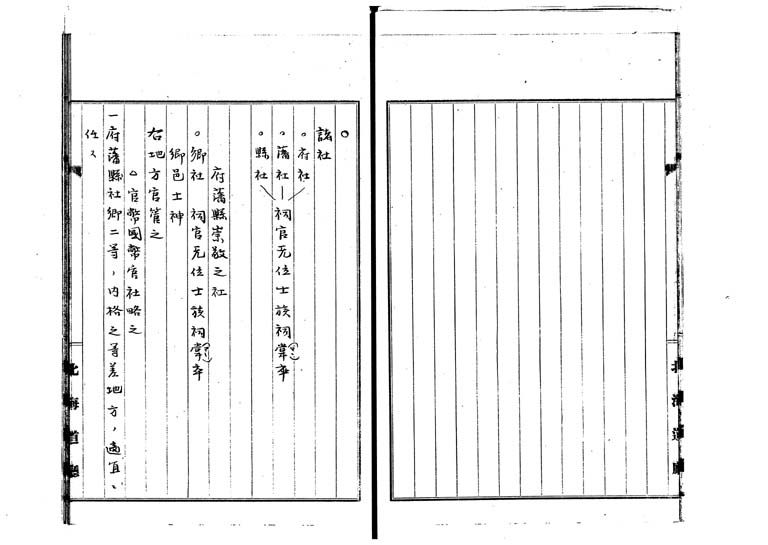 ○
諸社
。府社
。藩社
。縣社
祠官无位士族祠掌(マヽ)卒
府藩縣崇敬之社
。郷社 祠官无位士族祠掌(マヽ)卒
郷邑士神
右地方官管之
△官幣國幣官社略之
一府藩縣社郷二等，内格之等差地方，適宜、
任ス
北海道廳
北海道廳